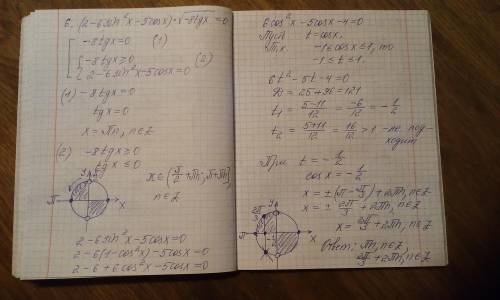 6. (2-6sin²x-5cosx)·√-8tgx=0
[ -8tgx=0 (1)
{ -8tgx≥0 (2)
2-6sin²x-5cosx=0
(1) -8tgx=0
tgx=0
x=πn, n∈Z
(2) -8tgx≥0
tgx≤0
x∈(π/2+πn; π+πn]
n∈Z
y
π
x
2-6sin²x-5cosx=0
2-6(1-cos²x)-5cosx=0
2-6+6cos²x-5cosx=0
6cos²x-5cosx-4=0
Пусть t=cosx.
Т.к. -1≤cosx≤1, то
-1≤t≤1.
6t²-5t-4=0
D=25+96=121
t₁=(5-11)/12=-6/12=-1/2
t₂=(5+11)/12=16/12>1 -не под-
ходит
При t=-1/2
cosx=-1/2
x=±(π-π/3)+2πn, n∈Z
x=±2π/3+2πn, n∈Z
x=2π/3+2πn, n∈Z
2π/3
y
x
Ответ: πn, n∈Z
2π/3+2πn, n∈Z